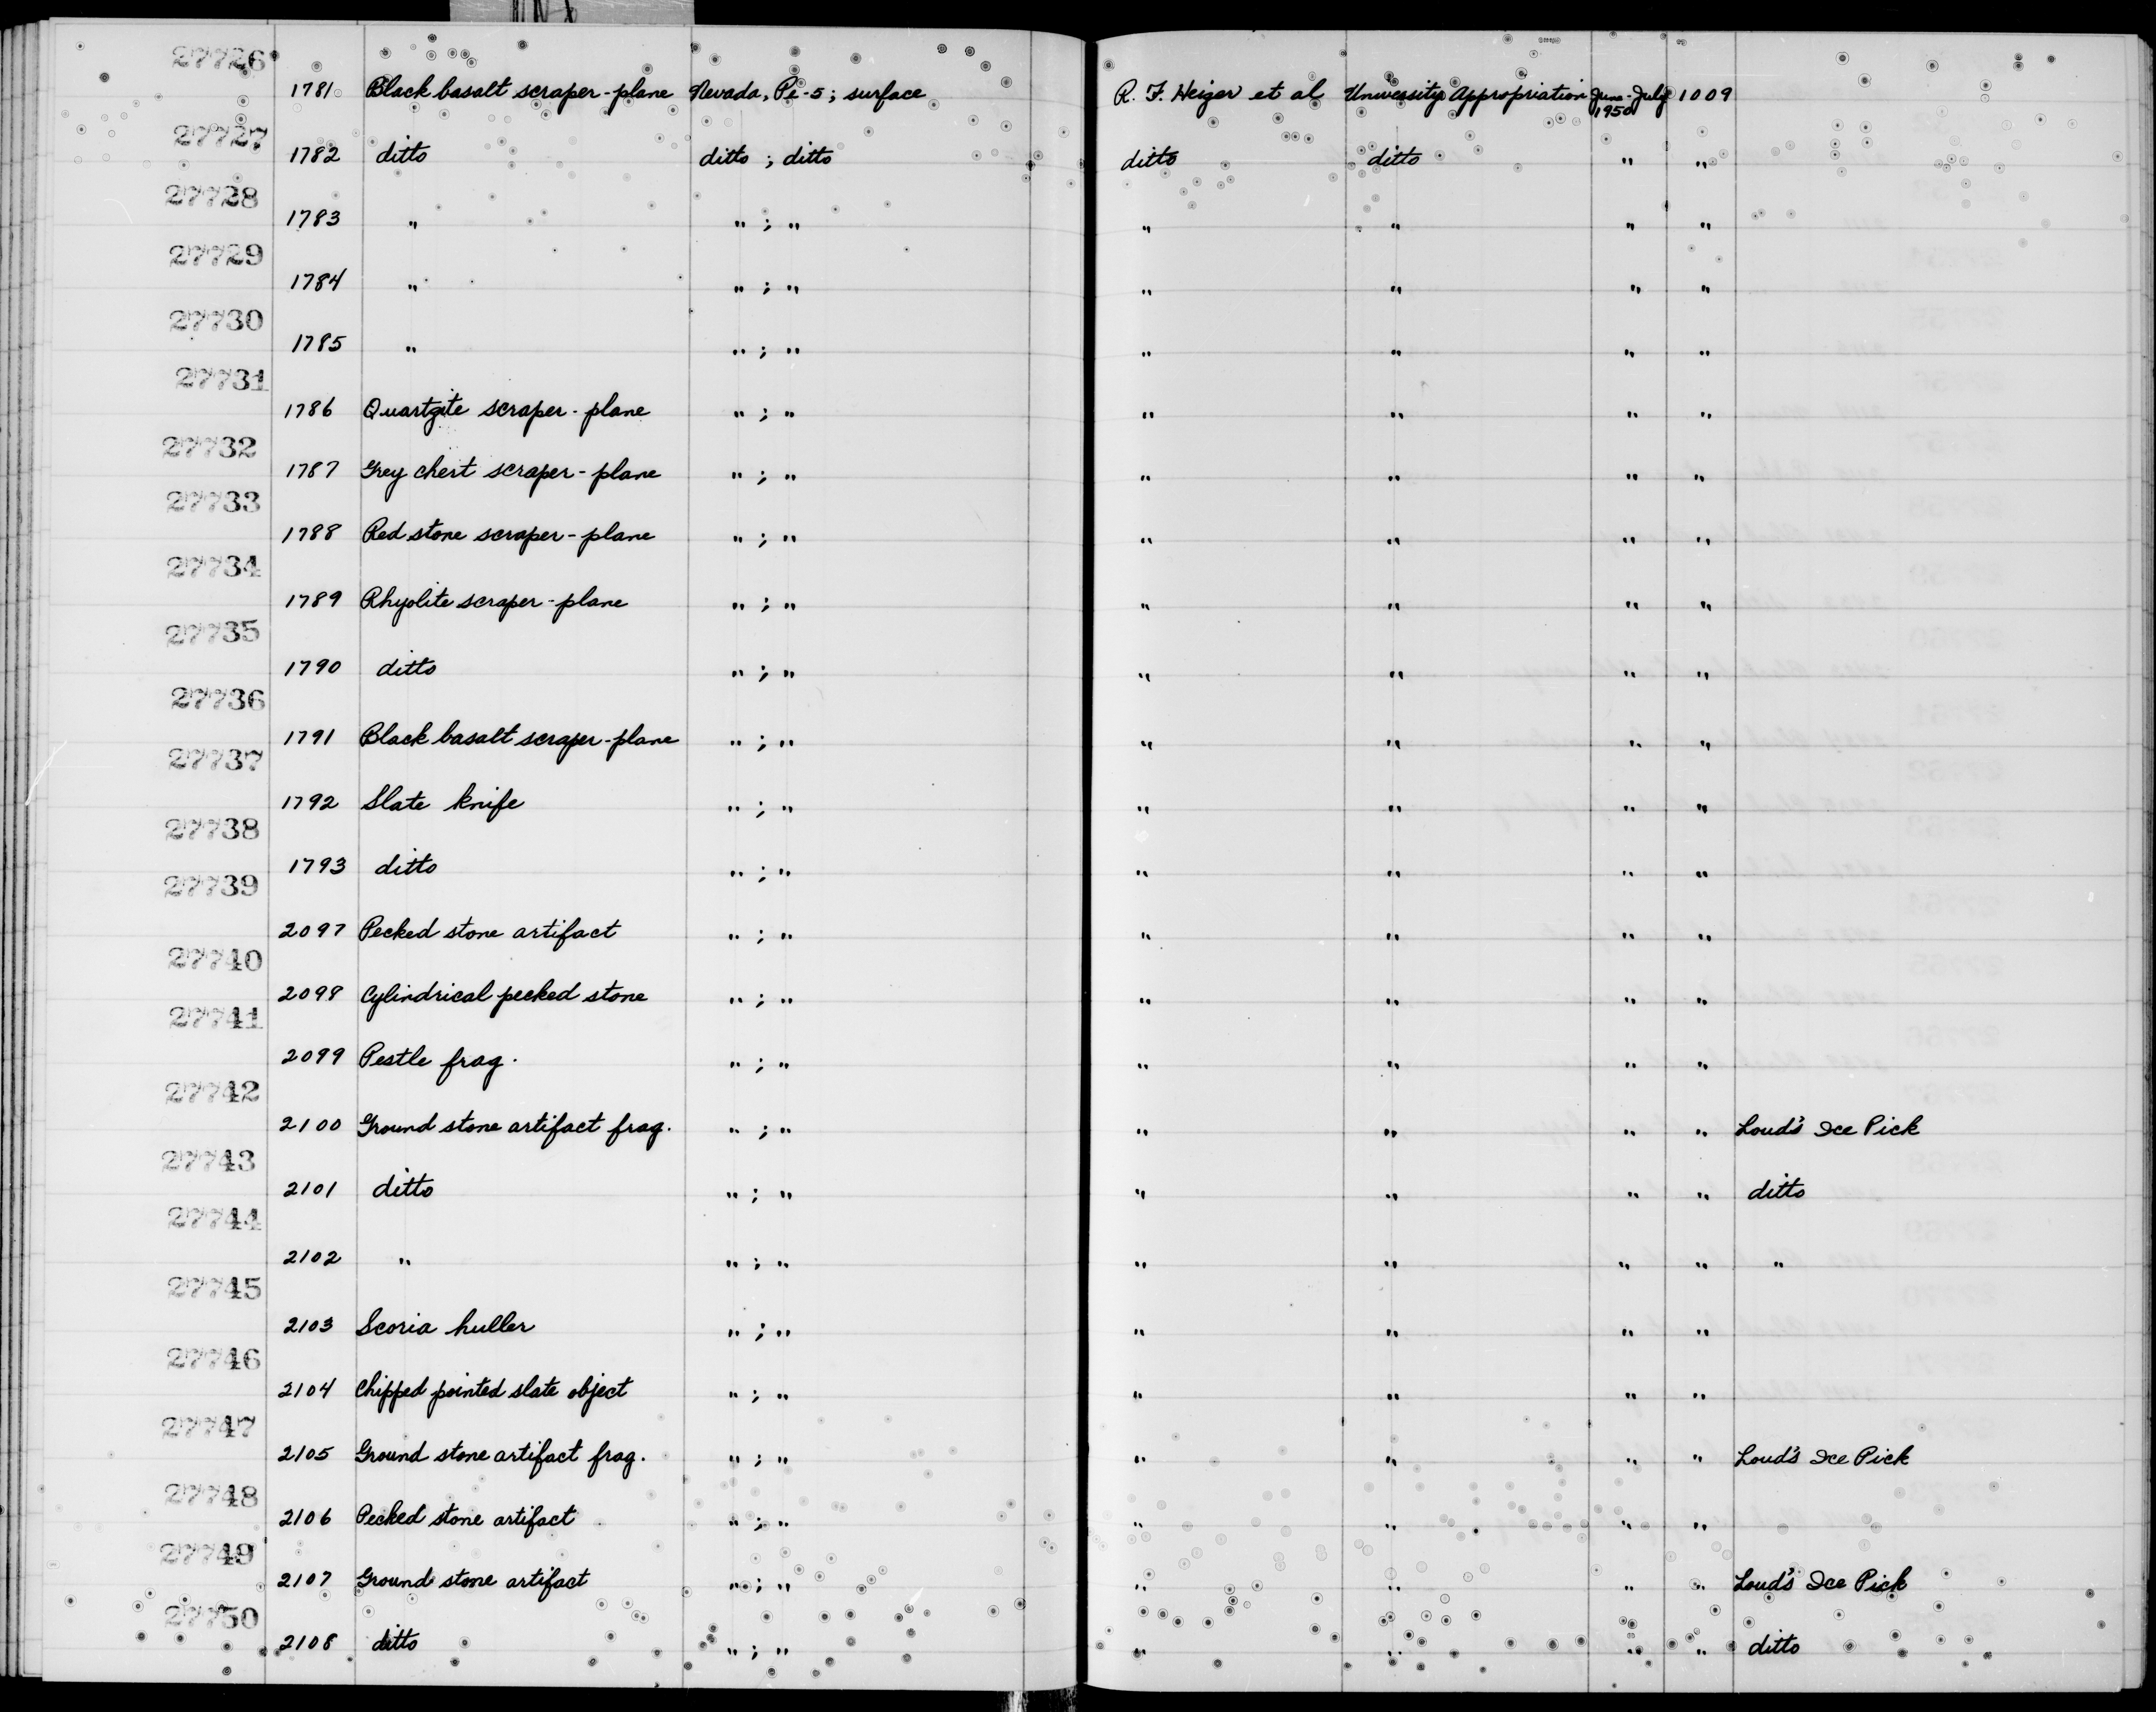 27726
1781 Black basalt scraper-plane Nevada, Pe-5; surface R. F. Heizer et al University Appropriation June-July 1950 1009
27727
1782 ditto ditto ; ditto ditto ditto " "
27728
1783 " " ; " " " " "
27729
1784 " " ; " " " " "
27730
1785 " " ; " " " " "
27731
1786 Quartzite scraper-plane " ; " " " " "
27732
1787 Grey chert scraper-plane " ; " " " " "
27733
1788 Red stone scraper-plane " ; " " " " "
27734
1789 Rhyolite scraper-plane " ; " " " " "
27735
1790 ditto " ; " " " " "
27736
1791 Black basalt scraper-plane " ; " " " " "
27737
1792 Slate knife " ; " " " " "
27738
1793 ditto " ; " " " " "
27739
2097 Pecked stone artifact " ; " " " " "
27740
2098 Cylindrical pecked stone " ; " " " " "
27741
2099 Pestle frag. " ; " " " " "
27742
2100 Ground stone artifact frag. " ; " " " " " Loud's Ice Pick
27743
2101 ditto " ; " " " " " ditto
27744
2102 " " ; " " " " " "
27745
2103 Scoria huller " ; " " " " "
27746
2104 Chipped pointed slate object " ; " " " " "
27747
2105 Ground stone artifact frag. " ; " " " " " Loud's Ice Pick
27748
2106 Pecked stone artifact " ; " " " " "
27749
2107 Ground stone artifact " ; " " " " " Loud's Ice Pick
27750
2108 ditto " ; " " " " " ditto